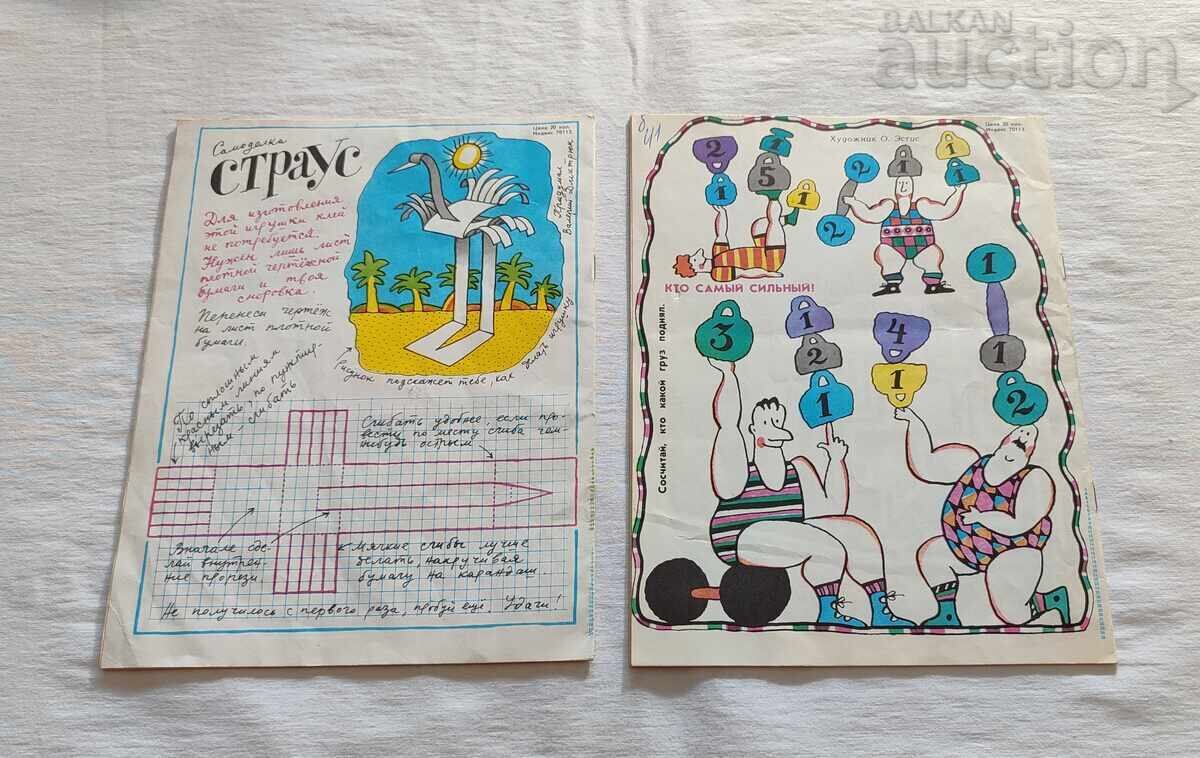 BALKAN
auction
Цена 20 коп.
Индекс 70113
Самоделка
СТРАУС
Для изготовления
этой игрушки клей
не потребуется.
Нужен лишь лист
плотной чертёжной
бумаги и твоя
сноровка.
Перенеси чертёж
на лист плотной
бумаги.
По сплошным
красным линиям
вырезать, по пунктир-
ным - сгибать
Придумал
Валерий Дмитрюк
Рисунок подскажет тебе, как делать игрушку
Сгибать удобнее, если про-
вести по месту сгиба чем-
нибудь острым
Вначале сде-
лай внутрен-
ние прорези.
Мягкие сгибы лучше
делать накручивая
бумагу на карандаш.
Не получилось с первого раза, пробуй ещё. Удачи!
Цена 20 коп.
Индекс 70113
Художник О. Эстис
2
1
1
5
1
2
2
1
1
1
КТО САМЫЙ СИЛЬНЫЙ!
Сосчитай, кто какой груз поднял.
3
1
2
1
4
1
1
1
2